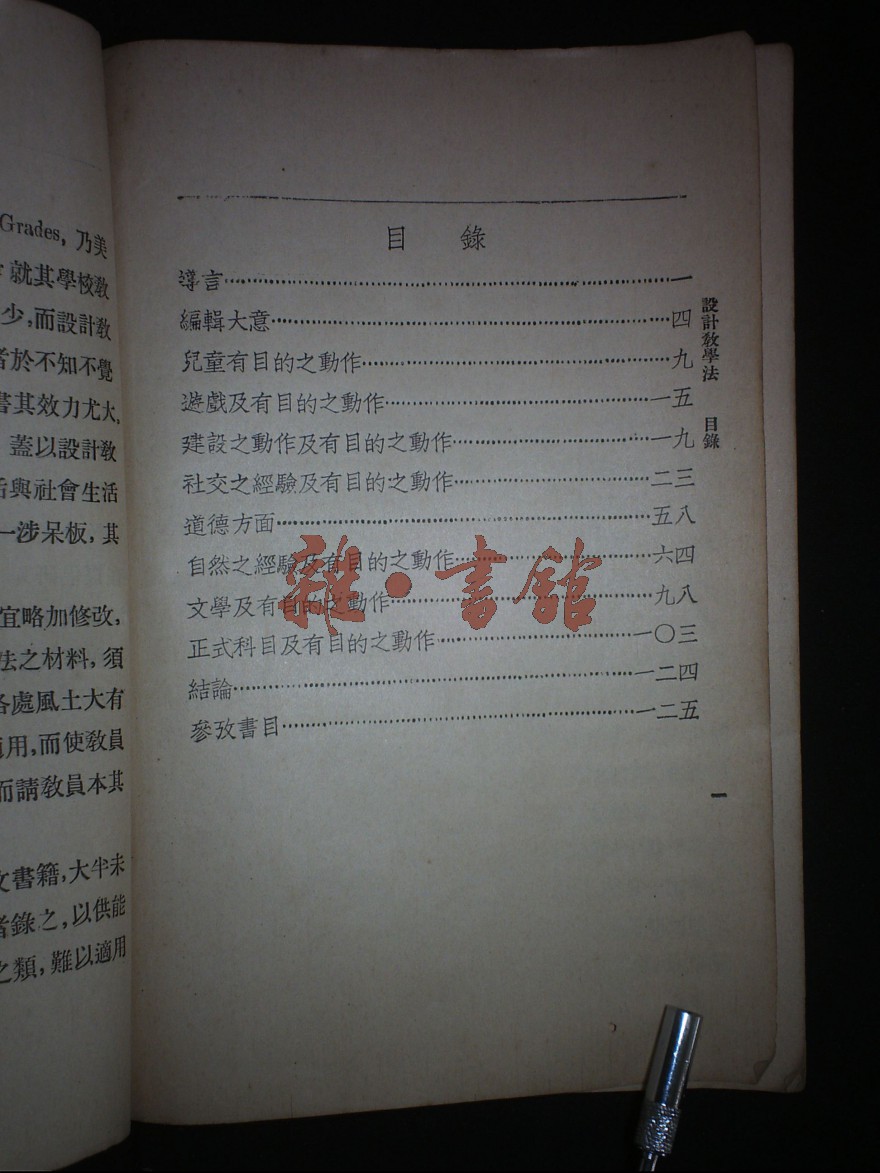 Grades, 乃美
就其學校敎
少,而設計敎
者於不知不覺
書其效力尤大,
蓋以設計敎
活與社會生活
一涉呆板,其
宜略加修改,
法之材料,須
各處風土大有
適用,而使敎員
而請敎員本其
文書籍,大半未
者錄之,以供能
之類,難以適用
目 錄
導言……一
編輯大意……四
兒童有目的之動作……九
遊戲及有目的之動作……一五
建設之動作及有目的之動作……一九
社交之經驗及有目的之動作……二三
道德方面……五八
自然之經驗及有目的之動作……六四
文學及有目的之動作……九八
正式科目及有目的之動作……一〇三
結論……一二四
參攷書目……一二五
設計敎學法 目錄
一
雜·書館